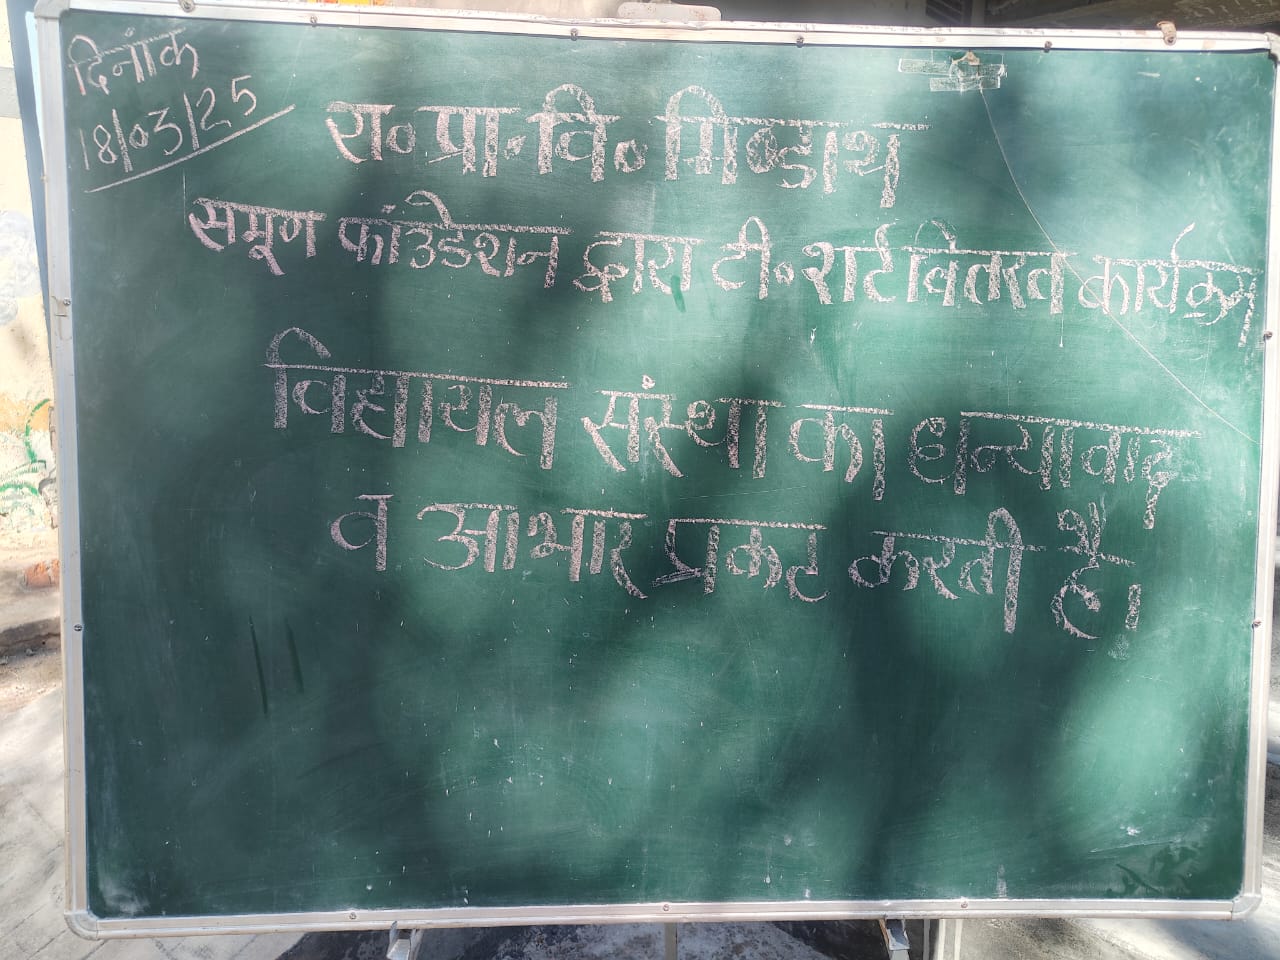 दिनांक
18/03/25
रा० प्रा० वि० मिण्डाथ
समूण फांउडेशन द्वारा टी० शर्ट वितरत कार्यक्रम
विद्यायल संस्था का धन्यावाद
व आभार प्रकट करती है।